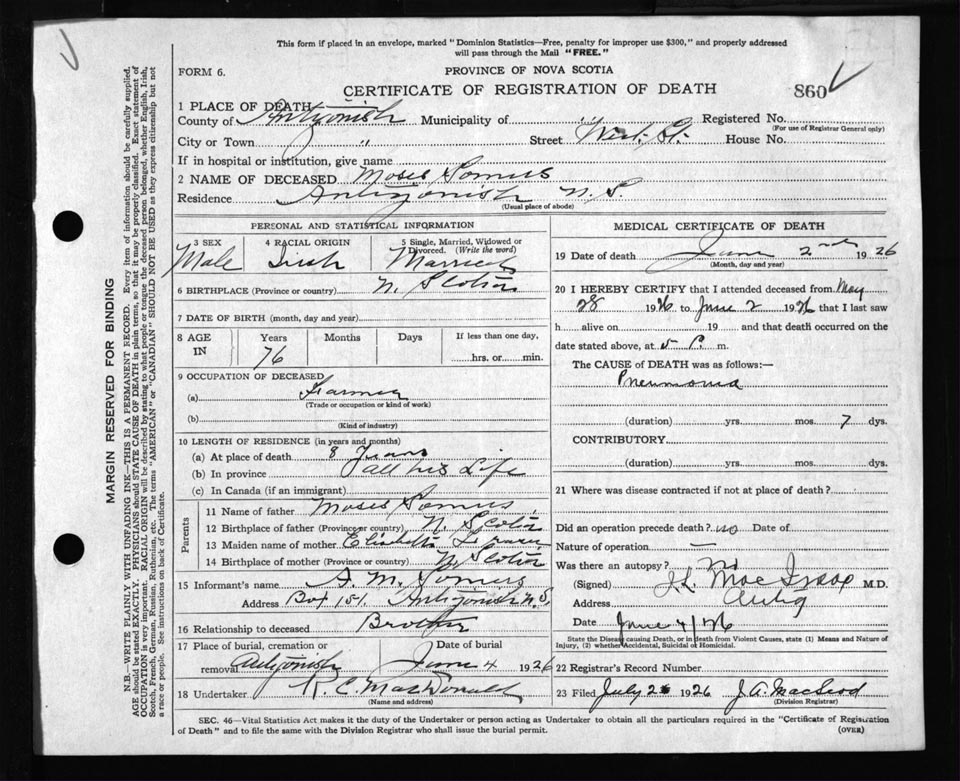 This form if placed in an envelope, marked "Dominion Statistics—Free, penalty for improper use $300," and properly addressed
will pass through the Mail "FREE."
FORM 6.
PROVINCE OF NOVA SCOTIA
CERTIFICATE OF REGISTRATION OF DEATH
860
1 PLACE OF DEATH
County of Antigonish Municipality of Registered No.
(For use of Registrar General only)
City or Town " Street West St. House No.
If in hospital or institution, give name
2 NAME OF DECEASED Moses Somers
Residence Antigonish N. S.
(Usual place of abode)
PERSONAL AND STATISTICAL INFORMATION
3 SEX 4 RACIAL ORIGIN 5 Single, Married, Widowed or
Divorced. (Write the word)
Male Irish Married
6 BIRTHPLACE (Province or country) N. Scotia
7 DATE OF BIRTH (month, day and year)
8 AGE IN Years Months Days If less than one day,
76 hrs. or min.
9 OCCUPATION OF DECEASED
(a) Farmer
(Trade or occupation or kind of work)
(b)
(Kind of industry)
10 LENGTH OF RESIDENCE (in years and months)
(a) At place of death 8 Years
(b) In province all his Life
(c) In Canada (if an immigrant)
Parents
11 Name of father Moses Somers
12 Birthplace of father (Province or country) N. Scotia
13 Maiden name of mother Elizabeth
14 Birthplace of mother (Province or country) N. Scotia
15 Informant's name A. M. Somers
Address Box 151. Antigonish N.S.
16 Relationship to deceased Brother
17 Place of burial, cremation or Date of burial
removal Antigonish June 4 1926
18 Undertaker R. C. MacDonald
(Name and address)
MEDICAL CERTIFICATE OF DEATH
19 Date of death June 2nd 1926
(Month, day and year)
20 I HEREBY CERTIFY that I attended deceased from May
28 1926 to June 2 1926 that I last saw
h alive on 19 and that death occurred on
date stated above, at 5 P. m.
The CAUSE of DEATH was as follows:—
Pneumonia
(duration) yrs. mos. 7 dys.
CONTRIBUTORY
(duration) yrs. mos. dys.
21 Where was disease contracted if not at place of death?
Did an operation precede death? no Date of
Nature of operation —
Was there an autopsy? no
(Signed) J.L. MacIsaac M.D.
Address Antig
Date June 4/26
State the Disease causing Death, or in death from Violent Causes, state (1) Means and Nature of
Injury, (2) whether Accidental, Suicidal or Homicidal.
22 Registrar's Record Number
23 Filed July 2 1926 J. A. MacLeod
(Division Registrar)
SEC. 46—Vital Statistics Act makes it the duty of the Undertaker or person acting as Undertaker to obtain all the particulars required in the "Certificate of Registration
of Death" and to file the same with the Division Registrar who shall issue the burial permit.
(OVER)
MARGIN RESERVED FOR BINDING
N.B.—WRITE PLAINLY WITH UNFADING INK—THIS IS A PERMANENT RECORD. Every item of information should be carefully supplied.
AGE should be stated EXACTLY. PHYSICIANS should STATE CAUSE OF DEATH in plain terms, so that it may be properly classified. Exact statement of
OCCUPATION is very important. RACIAL ORIGIN will be described by stating to what people or tongue the deceased person belonged, whether English, Irish,
Scotch, French, German, Russian, Ruthenian, etc. The terms "AMERICAN" or "CANADIAN" SHOULD NOT BE USED as they express citizenship but not
a race or people. See instructions on back of Certificate.